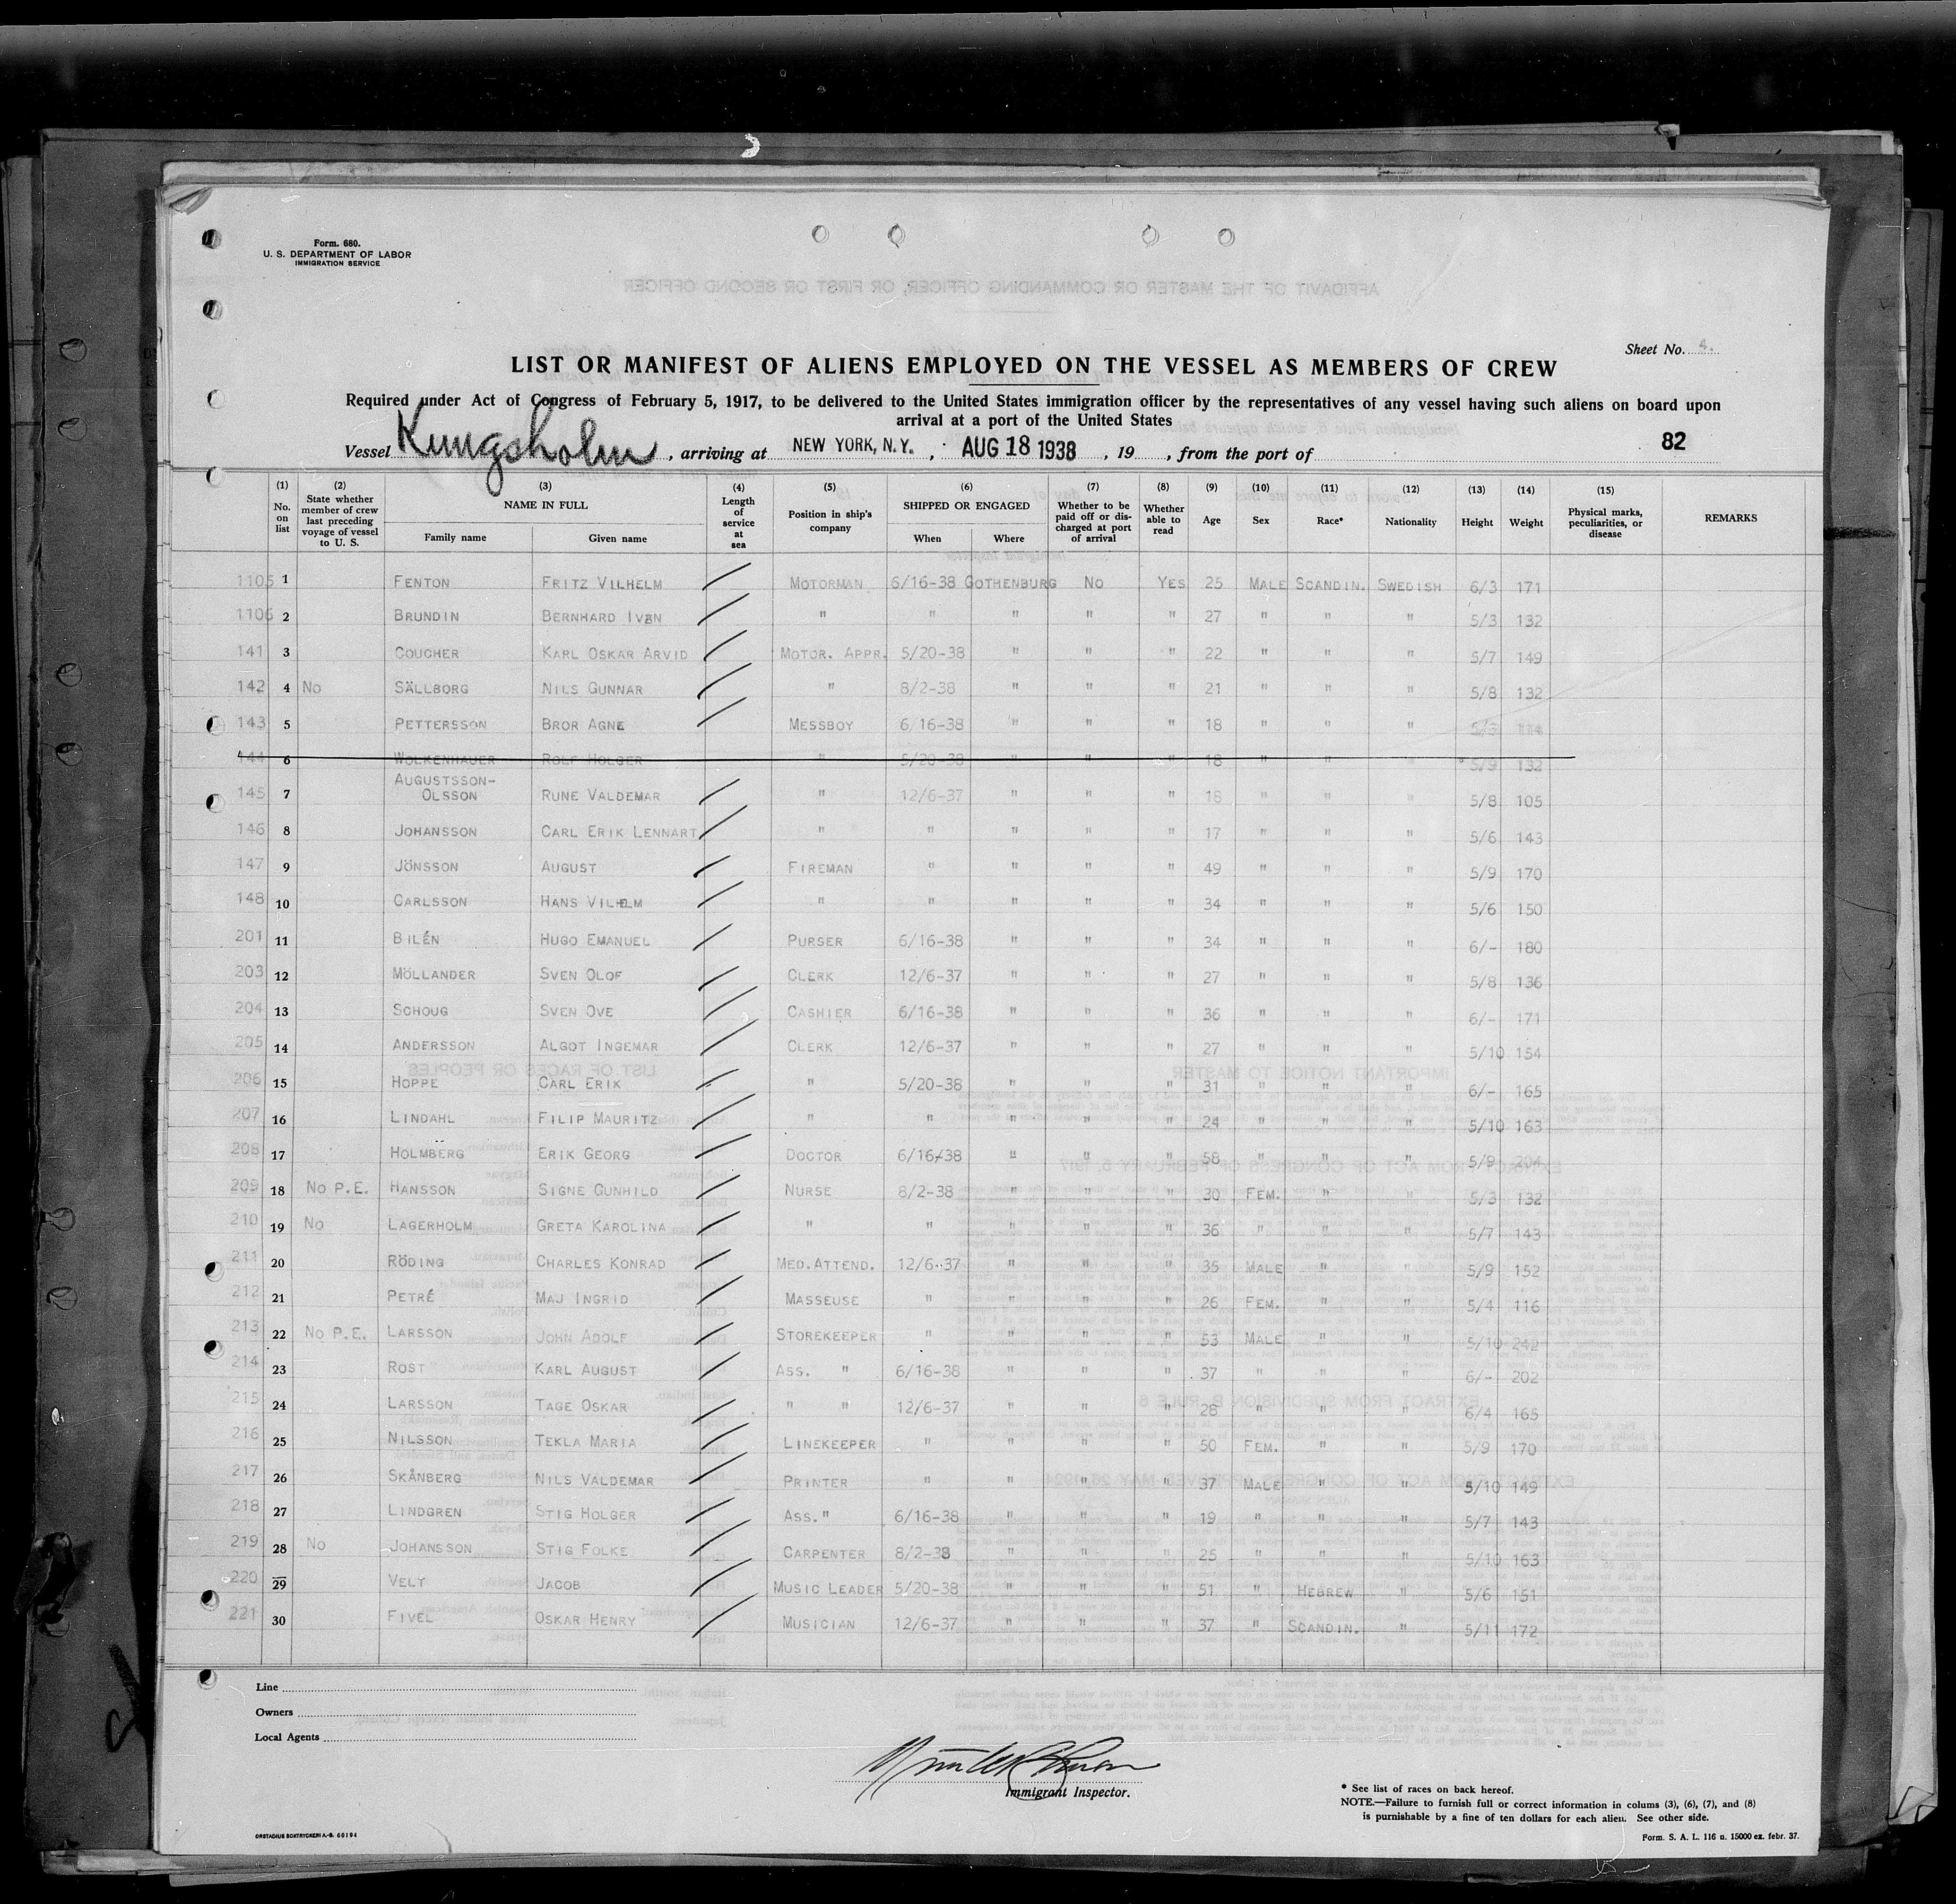 Form. 680.
U. S. DEPARTMENT OF LABOR
IMMIGRATION SERVICE
AFFIDAVIT OF THE MASTER OR COMMANDING OFFICER, OR FIRST OR SECOND OFFICER
Sheet No. 4.
LIST OR MANIFEST OF ALIENS EMPLOYED ON THE VESSEL AS MEMBERS OF CREW
Required under Act of Congress of February 5, 1917, to be delivered to the United States immigration officer by the representatives of any vessel having such aliens on board upon
arrival at a port of the United States
Vessel Kungsholm, arriving at NEW YORK, N.Y., AUG 18 1938, 19 , from the port of 82
(1) No. on list (2) State whether member of crew last preceding voyage of vessel to U. S. (3) NAME IN FULL Family name Given name (4) Length of service at sea (5) Position in ship's company (6) SHIPPED OR ENGAGED When Where (7) Whether to be paid off or discharged at port of arrival (8) Whether able to read (9) Age (10) Sex (11) Race* (12) Nationality (13) Height (14) Weight (15) Physical marks, peculiarities, or disease REMARKS
1105 1 FENTON FRITZ VILHELM MOTORMAN 6/16-38 GOTHENBURG NO YES 25 MALE SCANDIN. SWEDISH 6/3 171
1106 2 BRUNDIN BERNHARD IVEN " " " " " 27 " " " 5/3 132
141 3 COUCHER KARL OSKAR ARVID MOTOR. APPR. 5/20-38 " " " 22 " " " 5/7 149
142 4 NO SÄLLBORG NILS GUNNAR " 8/2-38 " " " 21 " " " 5/8 132
143 5 PETTERSSON BROR AGNE MESSBOY 6/16-38 " " " 18 " " " 5/3 114
144 6 WOLKENHAUER ROLF HOLGER " 5/20-38 " " " 18 " " " 5/9 132
145 7 AUGUSTSSON-OLSSON RUNE VALDEMAR " 12/6-37 " " " 18 " " " 5/8 105
146 8 JOHANSSON CARL ERIK LENNART " " " " " 17 " " " 5/6 143
147 9 JÖNSSON AUGUST FIREMAN " " " " 49 " " " 5/9 170
148 10 CARLSSON HANS VILHELM " " " " " 34 " " " 5/6 150
201 11 BILÉN HUGO EMANUEL PURSER 6/16-38 " " " 34 " " " 6/- 180
203 12 MÖLLANDER SVEN OLOF CLERK 12/6-37 " " " 27 " " " 5/8 136
204 13 SCHOUG SVEN OVE CASHIER 6/16-38 " " " 36 " " " 6/- 171
205 14 ANDERSSON ALGOT INGEMAR CLERK 12/6-37 " " " 27 " " " 5/10 154
206 15 HOPPE CARL ERIK " 5/20-38 " " " 31 " " " 6/- 165
207 16 LINDAHL FILIP MAURITZ " " " " " 24 " " " 5/10 163
208 17 HOLMBERG ERIK GEORG DOCTOR 6/16-38 " " " 58 " " " 5/9 204
209 18 NO P.E. HANSSON SIGNE GUNHILD NURSE 8/2-38 " " " 30 FEM. " " 5/3 132
210 19 NO LAGERHOLM GRETA KAROLINA " " " " " 36 " " " 5/7 143
211 20 RÖDING CHARLES KONRAD MED.ATTEND. 12/6-37 " " " 35 MALE " " 5/9 152
212 21 PETRÉ MAJ INGRID MASSEUSE " " " " 26 FEM. " " 5/4 116
213 22 NO P.E. LARSSON JOHN ADOLF STOREKEEPER " " " " 53 MALE " " 5/10 242
214 23 ROST KARL AUGUST ASS. " 6/16-38 " " " 37 " " " 6/- 202
215 24 LARSSON TAGE OSKAR " " 12/6-37 " " " 28 " " " 6/4 165
216 25 NILSSON TEKLA MARIA LINEKEEPER " " " " 50 FEM. " " 5/9 170
217 26 SKÅNBERG NILS VALDEMAR PRINTER " " " " 37 MALE " " 5/10 149
218 27 LINDGREN STIG HOLGER ASS. " 6/16-38 " " " 19 " " " 5/7 143
219 28 NO JOHANSSON STIG FOLKE CARPENTER 8/2-38 " " " 25 " " " 5/10 163
220 29 VELY JACOB MUSIC LEADER 5/20-38 " " " 51 " HEBREW " 5/6 151
221 30 FIVEL OSKAR HENRY MUSICIAN 12/6-37 " " " 37 " SCANDIN. " 5/11 172
Line
Owners
Local Agents
Immigrant Inspector.
* See list of races on back hereof.
NOTE.—Failure to furnish full or correct information in colums (3), (6), (7), and (8)
is punishable by a fine of ten dollars for each alien. See other side.
ORSTADIUS BOKTRYCKERI A.-B. 60194
Form. S. A. L. 116 n. 15000 ex. febr. 37.